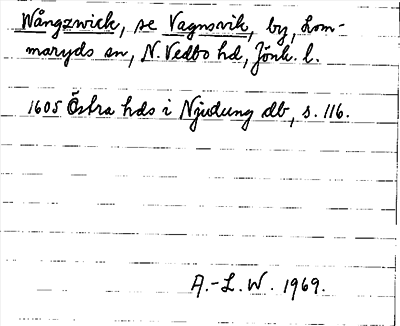 Wångzwick, se Vagnsvik, by, Lom-
maryds sn, N. Vedbo hd, Jönk. l.
1605 Östra hds i Njudung db, s. 116.
A.-L. W. 1969.